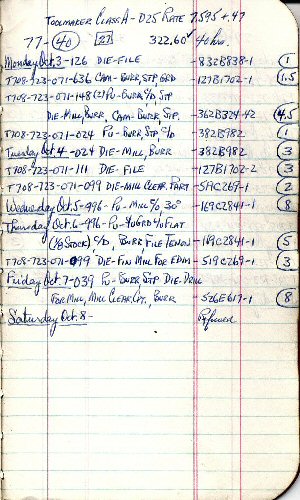 TOOLMAKER CLASS A - D25 RATE 7.595 + .47
77- 40 27 322.60 ✓ 40 hrs.
Monday Oct. 3 -126 DIE-FILE -832B838-1 1
T708-723-071-636 CAM-BURR, STP, GRD -127B1702-1 1.5
T708-723-071-148 (2) PU-BURR, 4/0 STP
DIE-MILL, BURR, CAM-BURR, STP, -362B324-42 4.5
T708-723-071-024 PU-BURR, STP, C/D 382B982 1
Tuesday Oct. 4 -024 DIE-MILL, BURR -382B982 3
T708-723-071-111 DIE-FILE -127B1702-2 3
T708-723-071-099 DIE-MILL CLEAR. PART -519C269-1 2
Wednesday Oct. 5 -996- PU-MILL C/D, 30° -169C2841-1 8
Thursday Oct. 6 -996- PU-40GRD 40FLAT
(1/8 STOCK) C/D, BURR FILE TENON -169C2841-1 5
T708-723-071-099 DIE-FIX MILL FOR EDM -519C269-1 3
Friday Oct. 7 -039 PU-BURR, STP DIE-DRILL
FOR MILL, MILL CLEAR, CPT., BURR -526E617-1 8
Saturday Oct. 8 - Refused